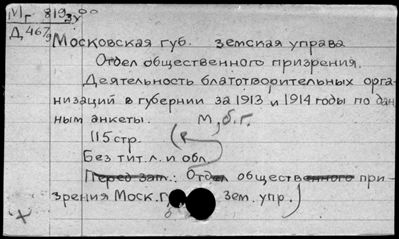 Мг 819
Д 467/9
Московская губ. земская управа
Отдел общественного призрения.
Деятельность благотворительных орга-
низаций в губернии за 1913 и 1914 годы по дан-
ным анкеты. М, б. г.
115 стр.
Без тит. л. и обл
Перед загл.: Отдел общественного при-
зрения Моск. г зем. упр.)